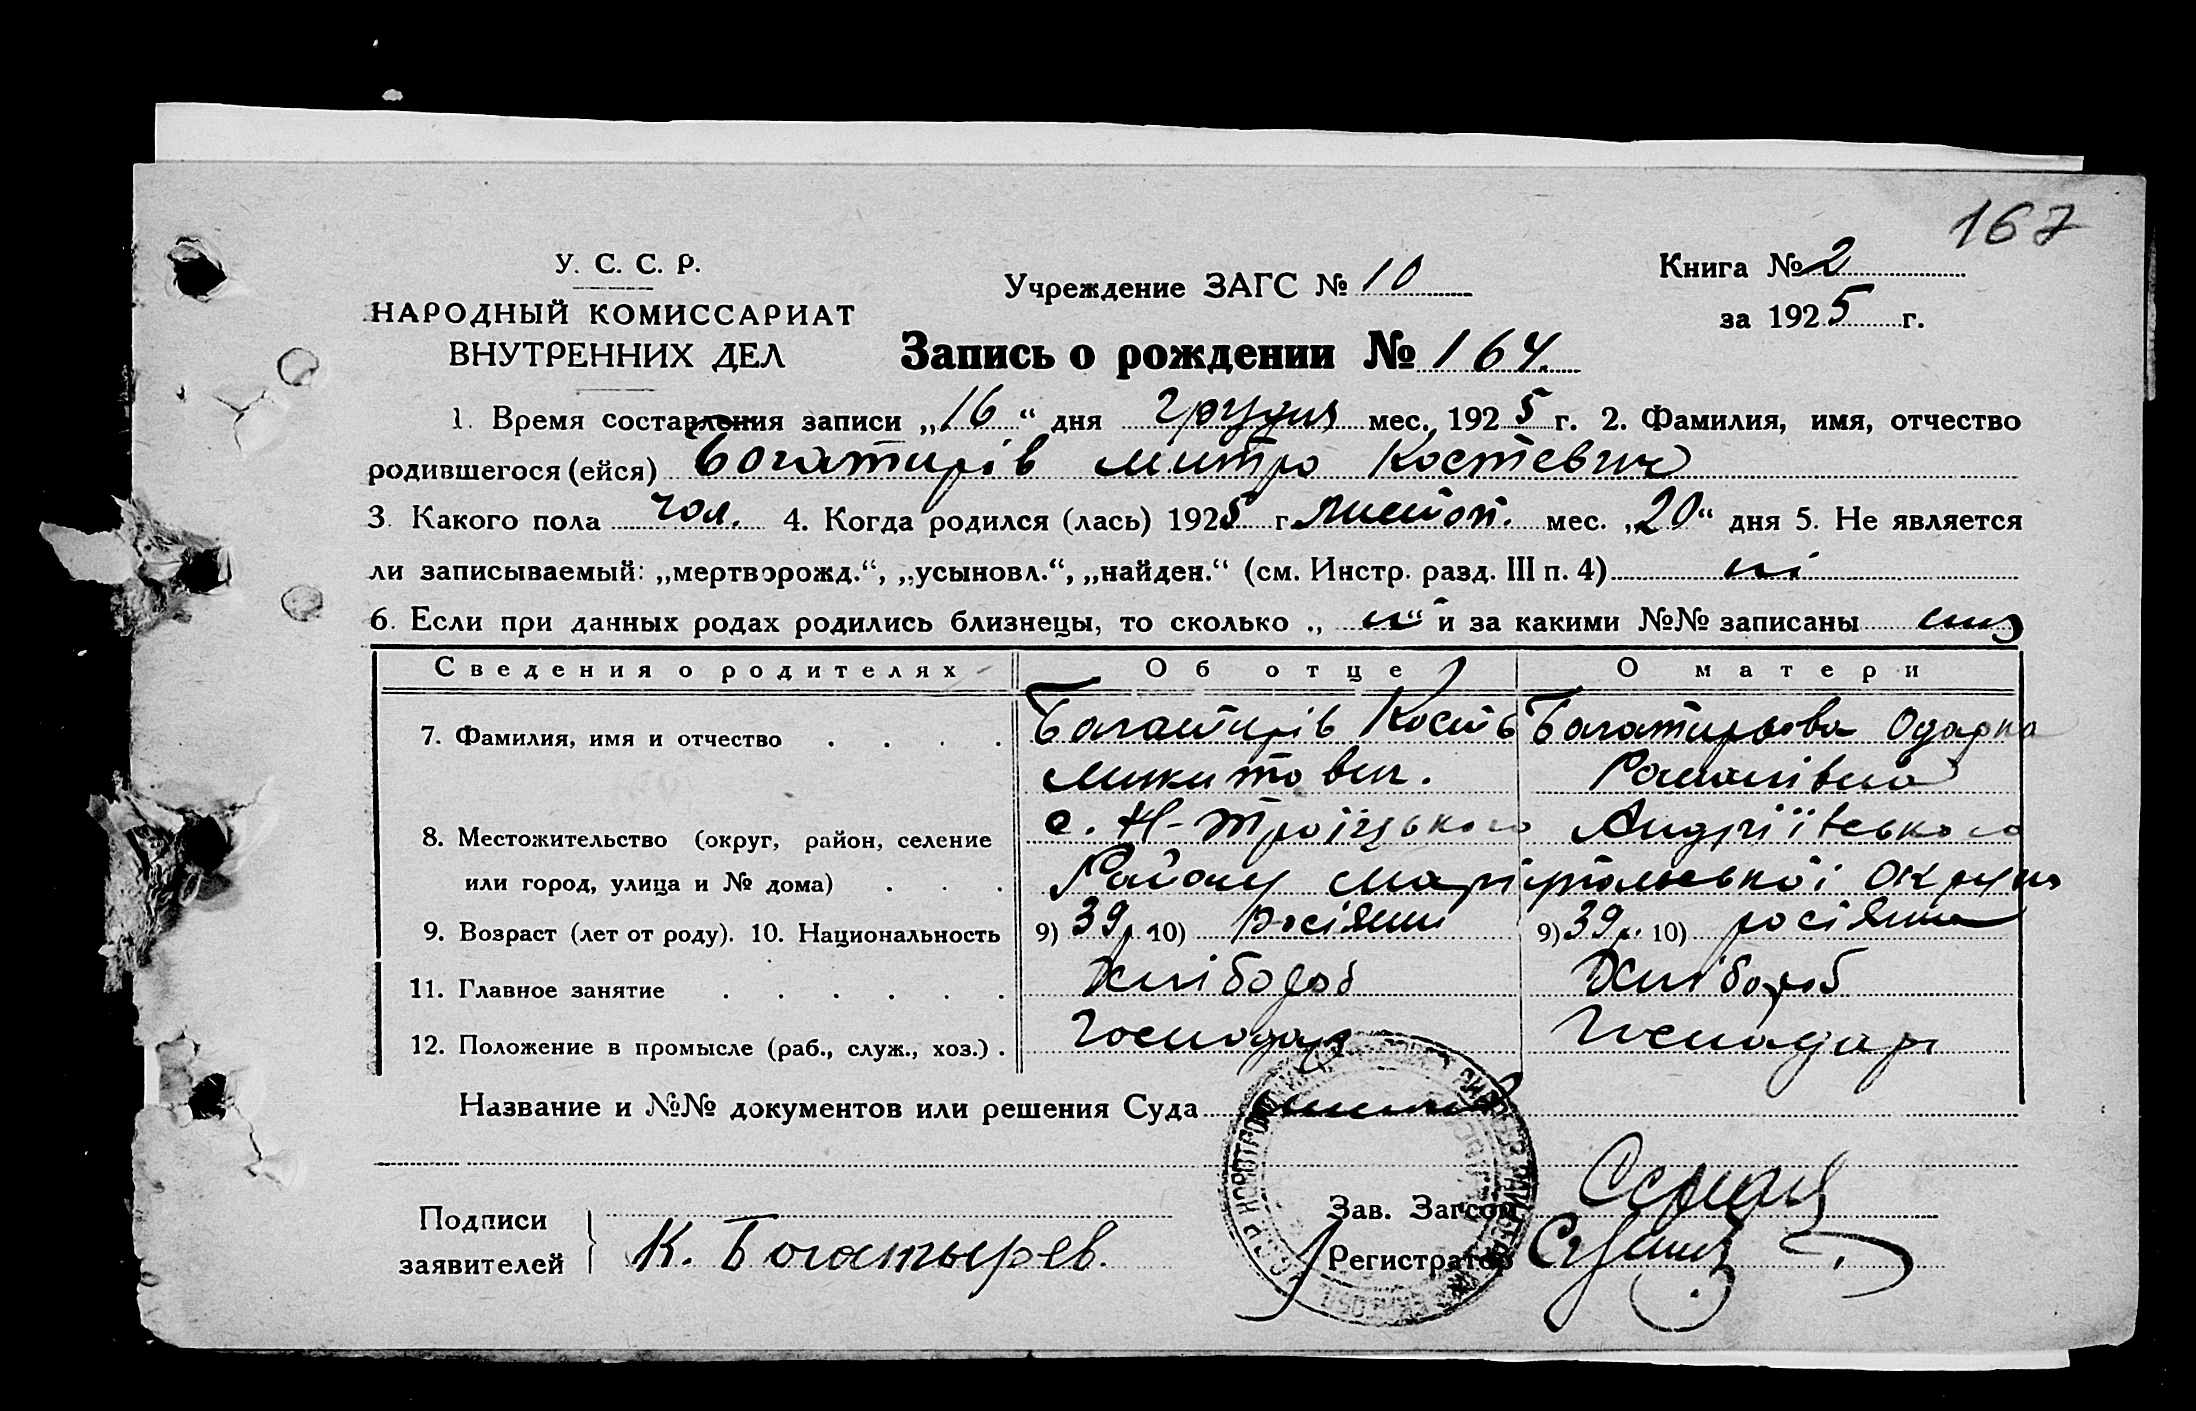 167
У. С. С. Р.
НАРОДНЫЙ КОМИССАРИАТ
ВНУТРЕННИХ ДЕЛ
Учреждение ЗАГС № 10
Книга № 2
за 1925 г.
Запись о рождении № 164.
1. Время составления записи „16“ дня грудня мес. 1925 г. 2. Фамилия, имя, отчество
родившегося (ейся) Богатирів Митро Костевич
3. Какого пола чол. 4. Когда родился (лась) 1925 г. листоп. мес. „20“ дня 5. Не является
ли записываемый: „мертворожд.“, „усыновл.“, „найден.“ (см. Инстр. разд. III п. 4) ні
6. Если при данных родах родились близнецы, то сколько „ “ и за какими №№ записаны
Сведения о родителях Об отце О матери
7. Фамилия, имя и отчество . . . . Богатирів Кость Богатирьова Одарка
Микитович. Романівна
8. Местожительство (округ, район, селение с. Н-Троїцького Андріївського
или город, улица и № дома) . . . Району Маріюпольської округи
9. Возраст (лет от роду). 10. Национальность 9) 39 р. 10) росіянин 9) 39 р. 10) росіянка
11. Главное занятие . . . . . . Хлібороб Хлібороб
12. Положение в промысле (раб., служ., хоз.) . Господарь Господарь
Название и №№ документов или решения Суда
Подписи
заявителей К. Богатырев.
Зав. Загсом
Регистратор